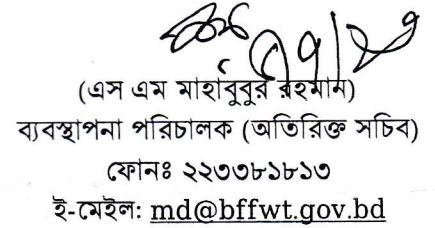 (এস এম মাহাবুবুর রহমান)
ব্যবস্থাপনা পরিচালক (অতিরিক্ত সচিব)
ফোনঃ ২২৩৩৮১৮১৩
ই-মেইল: md@bffwt.gov.bd